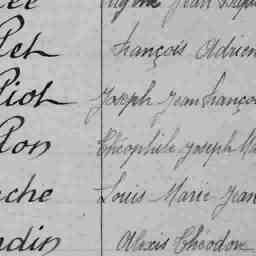 Eugène Jean Bapt
let François Adrien
Riot Joseph Jean Franço
lon Théophile Joseph Ma
che Louis Marie Jean
ndin Alexis Théodore